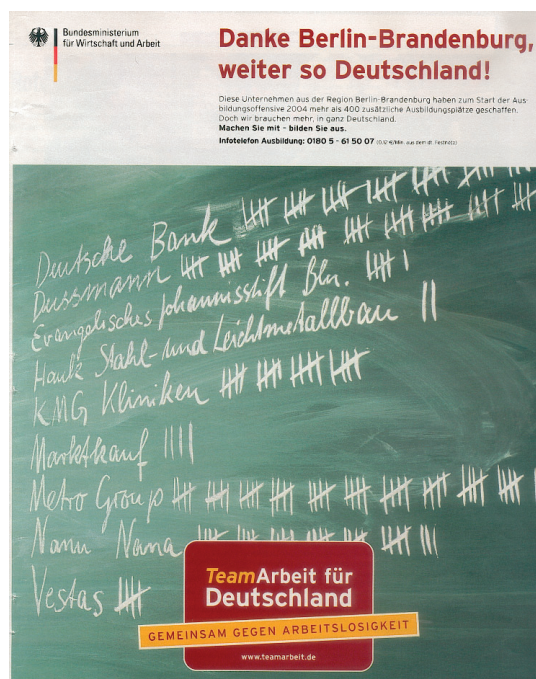 Bundesministerium
für Wirtschaft und Arbeit
Danke Berlin-Brandenburg,
weiter so Deutschland!
Diese Unternehmen aus der Region Berlin-Brandenburg haben zum Start der Aus-
bildungsoffensive 2004 mehr als 400 zusätzliche Ausbildungsplätze geschaffen.
Doch wir brauchen mehr, in ganz Deutschland.
Machen Sie mit – bilden Sie aus.
Infotelefon Ausbildung: 0180 5 - 61 50 07 (0,12 €/Min. aus dem dt. Festnetz)
Deutsche Bank
Dussmann
Evangelisches Johannisstift Bln.
Hauk Stahl- und Leichtmetallbau
KMG Kliniken
Marktkauf
Metro Group
Nanu Nana
Vestas
TeamArbeit für
Deutschland
GEMEINSAM GEGEN ARBEITSLOSIGKEIT
www.teamarbeit.de